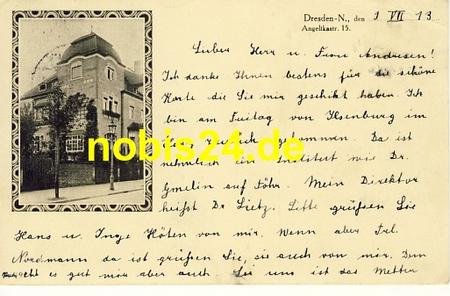 Dresden-N., den 1 VII 13
Angelikastr. 15.
Lieber Herr u. Frau Andresen!
Ich danke Ihnen bestens für die schöne
Karte die Sie mir geschikt haben. Ich
bin am Freitag von Ilsenburg im
Harz gekommen. Da ist
nobis24.de
nehmlich ein Institut wie Dr.
Gmelin auf Föhr. Mein Direktor
heißt Dr. Lietz. Bitte grüßen Sie
Hans u. Inge Höten von mir. Wenn aber Frl.
Nordmann da ist grüßen Sie, sie auch von mir. Dem
geht es gut mir aber auch Sie uns ist das Wetter